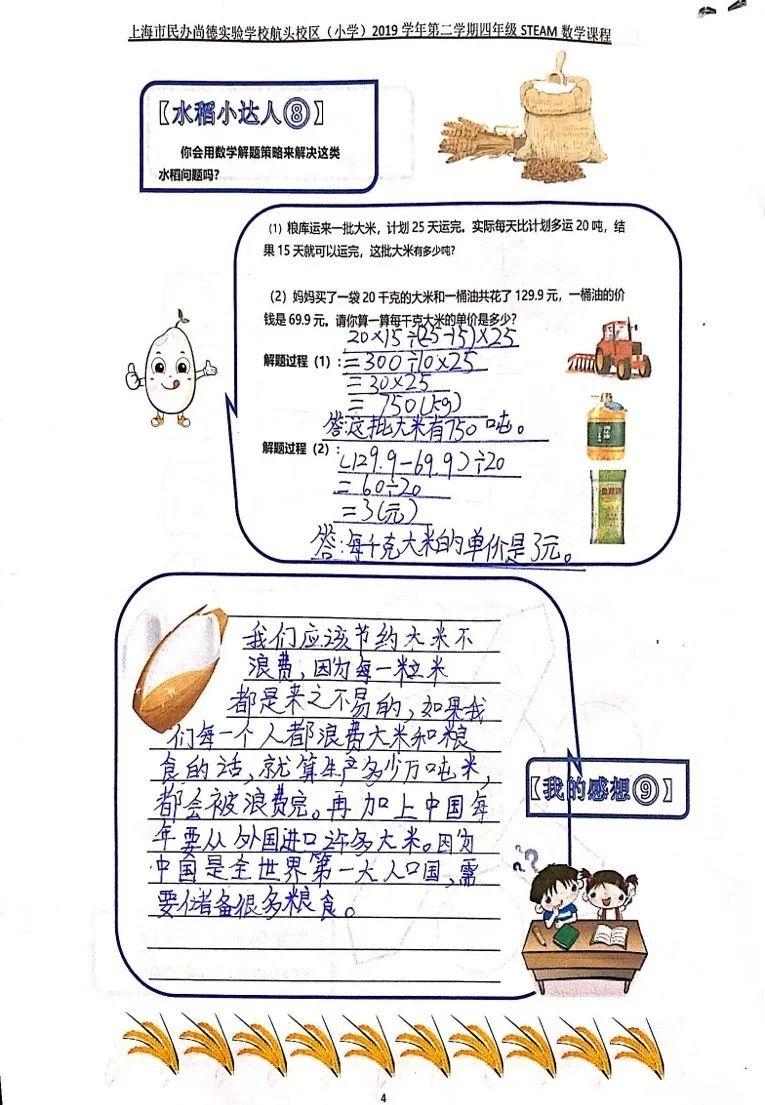 上海市民办尚德实验学校航头校区（小学）2019 学年第二学期四年级 STEAM 数学课程
【水稻小达人⑧】
你会用数学解题策略来解决这类
水稻问题吗？
（1）粮库运来一批大米，计划 25 天运完。实际每天比计划多运 20 吨，结
果 15 天就可以运完，这批大米有多少吨？
（2）妈妈买了一袋 20 千克的大米和一桶油共花了 129.9 元，一桶油的价
钱是 69.9 元。请你算一算每千克大米的单价是多少？
20×15÷(25-15)×25
解题过程（1）：=300÷10×25
=30×25
=750(kg)
答:这批大米有750吨。
解题过程（2）：
(129.9-69.9)÷20
=60÷20
=3(元)
答:每千克大米的单价是3元。
我们应该节约大米不
浪费,因为每一粒米
都是来之不易的,如果我
们每一个人都浪费大米和粮
食的话,就算生产多少万吨米,
都会被浪费完。再加上中国每
年要从外国进口许多大米。因为
中国是全世界第一大人口国,需
要储备很多粮食。
【我的感想⑨】
4